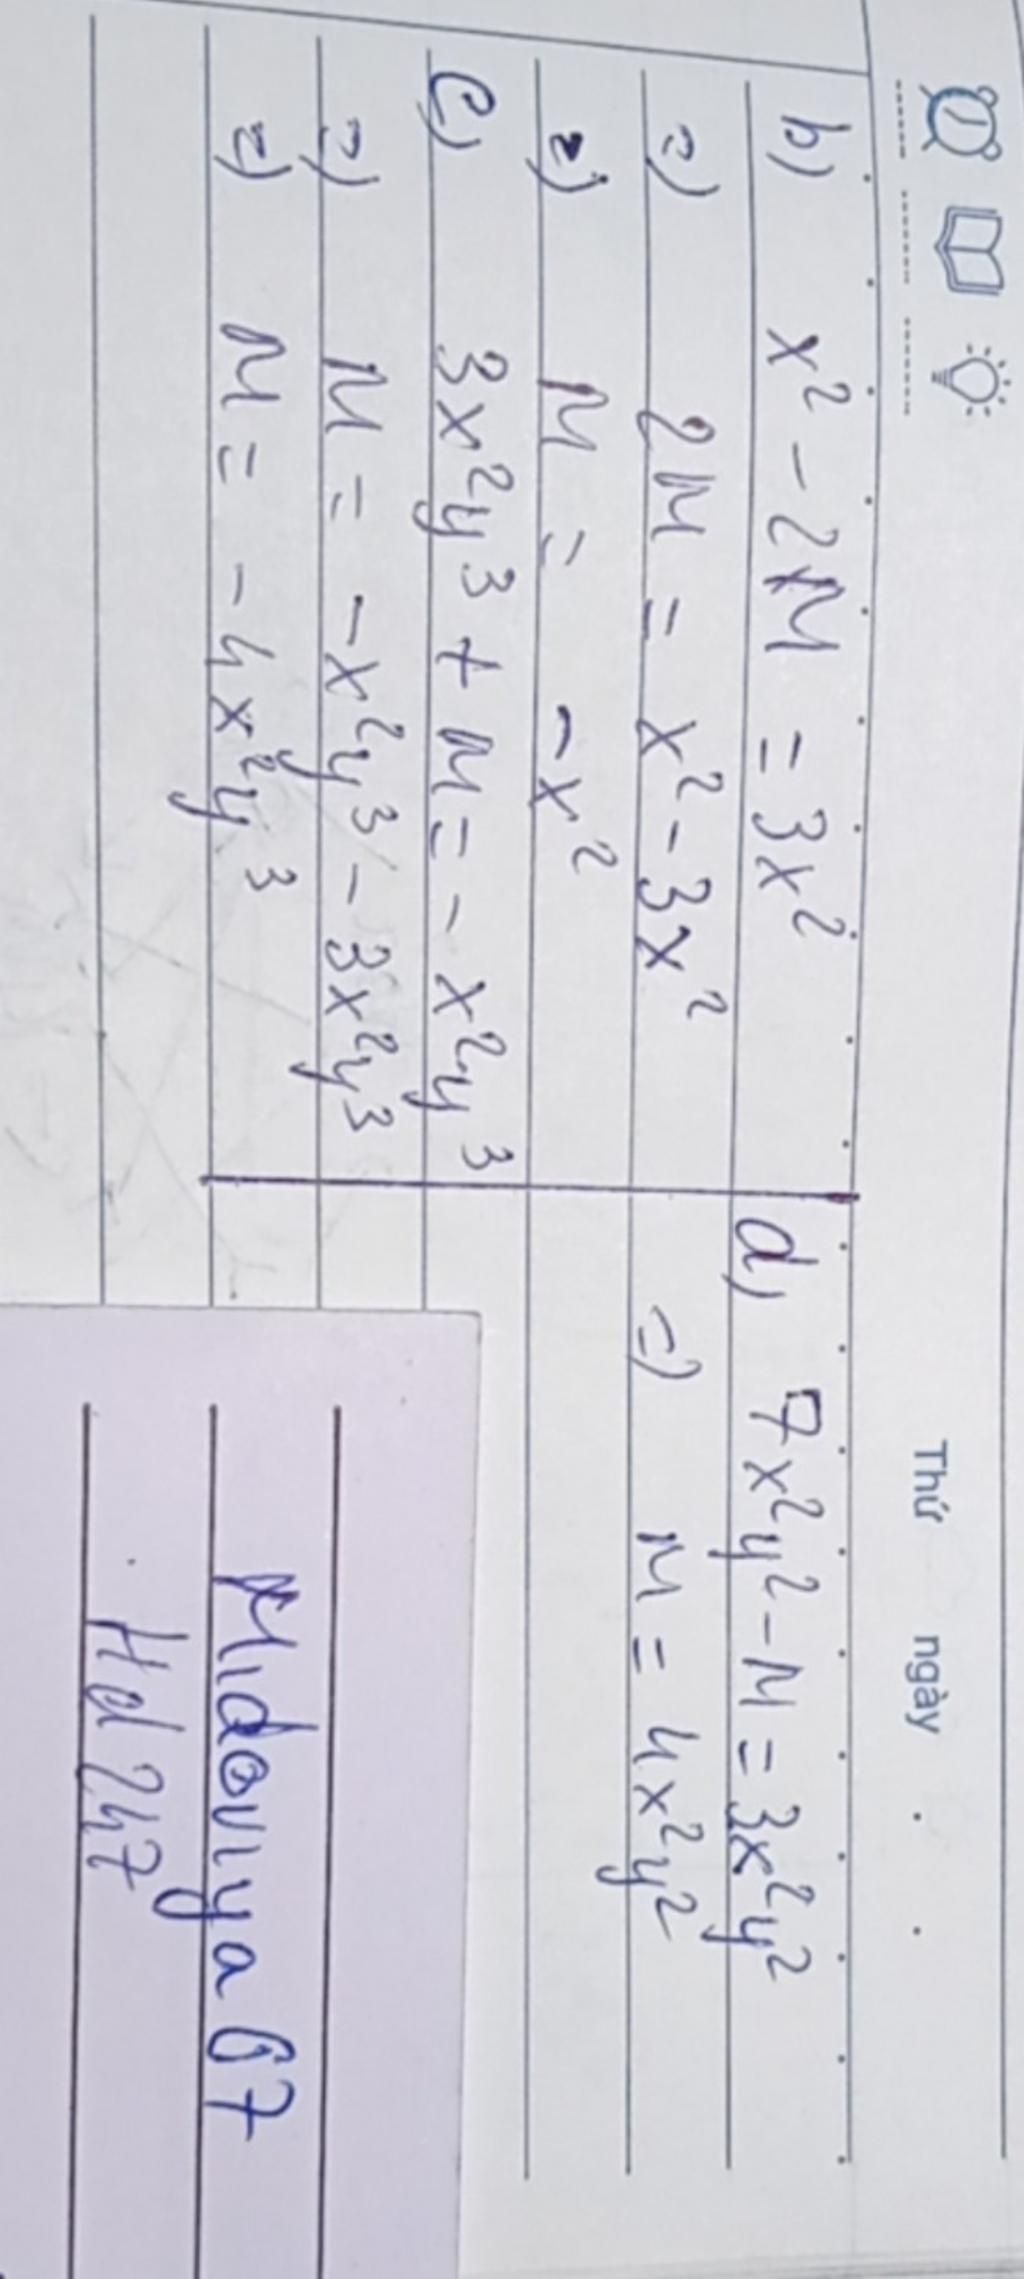 Thứ ngày
b) x² - 2M = 3x²
=) 2M = x² - 3x²
=) M = -x²
c) 3x²y³ + M = - x²y³
=) M = - x²y³ - 3x²y³
=) M = - 4x²y³
d) 7x²y² - M = 3x²y²
=) M = 4x²y²
Midoviya67
Hd247